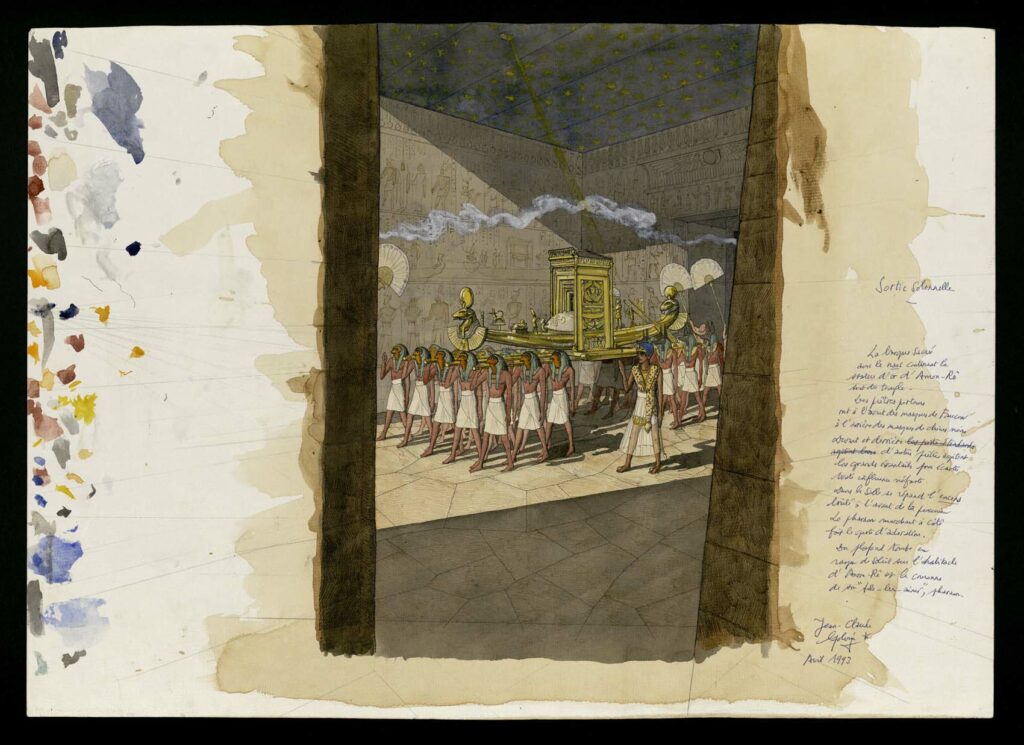 Sortie Solennelle
La barque sacrée
avec le naos contenant la
statue d'or d'Amon-Rê
sort du temple.
Les prêtres porteurs
ont à l'avant des masques de Faucon
à l'arrière des masques de chiens noirs
Devant et derrière
d'autres prêtres agitent
les grands éventails pour écarter
toute influence néfaste.
Dans la salle se répand l'encens
à l'avant de la
Le pharaon marchant à côté
fait le geste d'adoration.
Du plafond tombe un
rayon de soleil sur l'habitacle
d'Amon-Rê et la couronne
de son "fils-bien-aimé", pharaon.
Jean-Claude
Golvin
Avril 1993